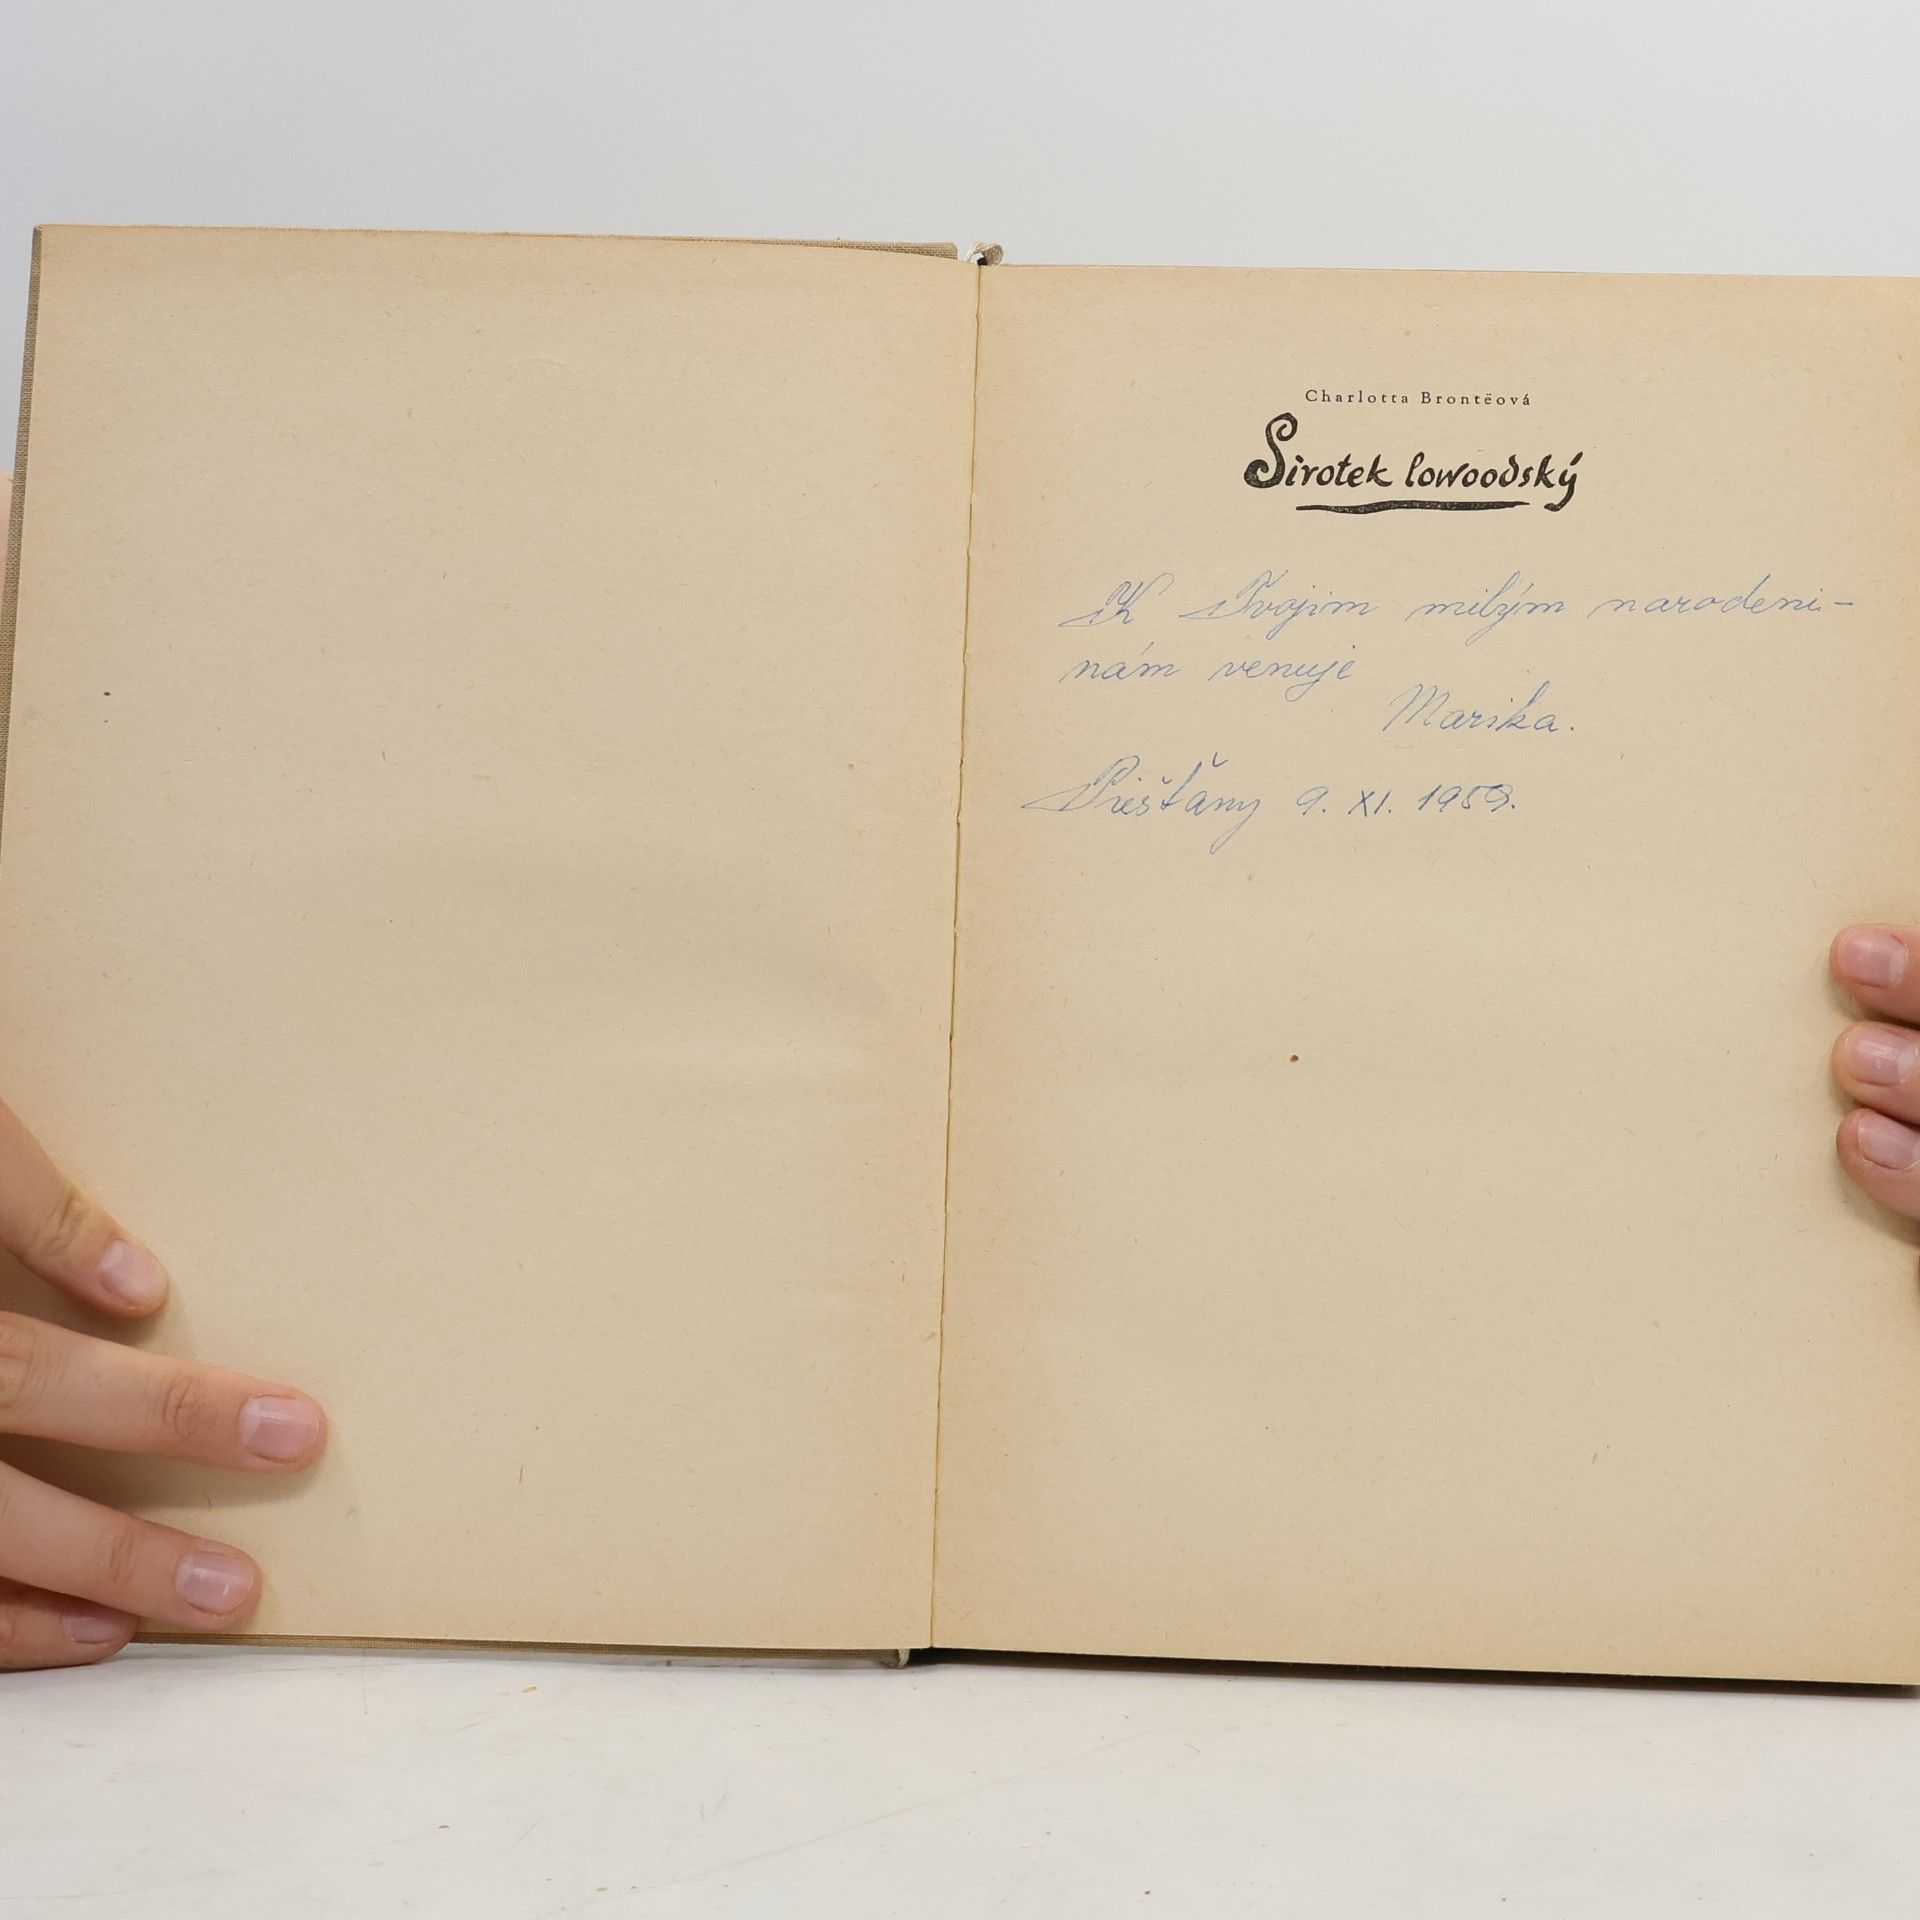 Charlotta Brontëová
Sirotek lowoodský
K Tvojim milým narodeni-
nám venuje
Marika.
Piešťany 9. XI. 1959.